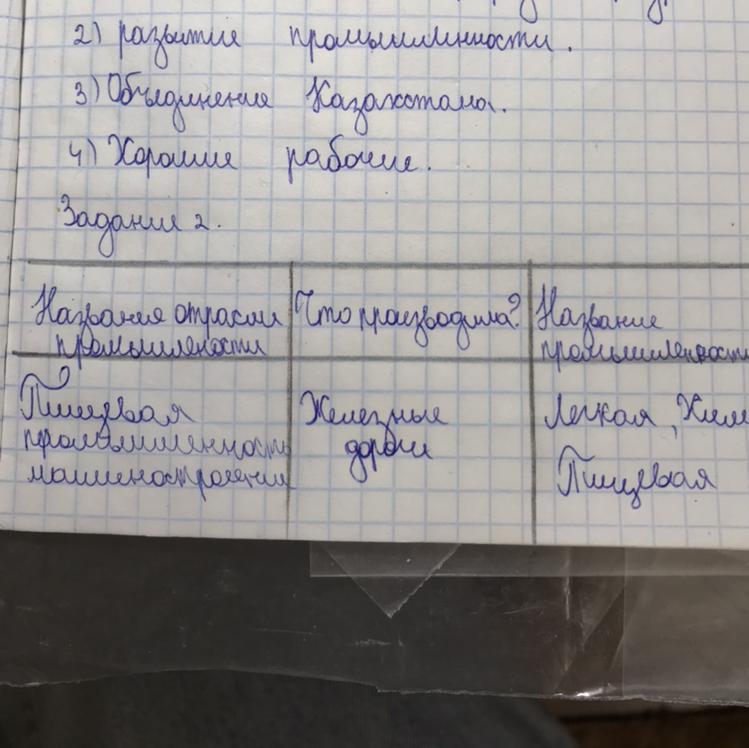 2) развитие промышленности.
3) Объединение Казахстана.
4) Хорошие рабочие.
Задание 2.
Названия отрасли промышлености
Что производила?
Название промышленности
Пищевая промышленность машиностроения
Железные дороги
Легкая, Хим
Пищевая